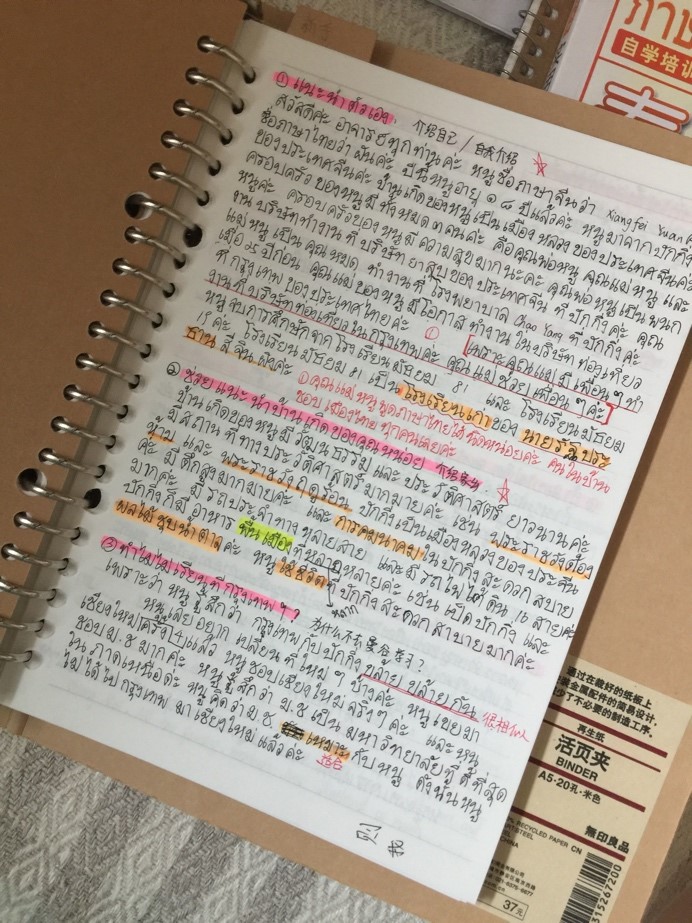 ① แนะนำตัวเอง
介绍自己 / 自我介绍
สวัสดีค่ะ อาจารย์ทุกท่านค่ะ หนูชื่อภาษาจีนว่า Xiangfei Yuan
ชื่อภาษาไทยว่าฝันค่ะ ปีนี้หนูอายุ ๑๘ ปีแล้วค่ะ หนูมาจากปักกิ่ง
ของประเทศจีนค่ะ บ้านเกิดของหนูเป็นเมืองหลวงของประเทศจีนค่ะ
ครอบครัวของหนูมีทั้งหมด คนค่ะ คือคุณพ่อหนู คุณแม่หนู และ
หนูค่ะ ครอบครัวของหนูมีความสุขมากนะคะ คุณพ่อหนูเป็นพนัก
งานบริษัททำงานที่บริษัทยาสูบของประเทศจีน ที่ปักกิ่งค่ะ
แม่หนูเป็นคุณหมอ ทำงานที่โรงพยาบาล Chao Yang ที่ปักกิ่งค่ะ
เมื่อ ปีก่อน คุณแม่ของหนูมีโอกาสทำงานในบริษัทท่องเที่ยว
ที่กรุงเทพของประเทศไทยค่ะ ① [เพราะคุณแม่มีเพื่อนๆทำ
งานที่บริษัทท่องเที่ยวในกรุงเทพค่ะ คุณแม่ช่วยเพื่อนๆค่ะ]
หนูจบการศึกษาจากโรงเรียนมัธยม 81 และโรงเรียนมัธยม
ค่ะ โรงเรียนมัธยม 81 เป็นโรงเรียนเก่าของ นายรัฐประ
ธาน สี จิ้น ผิงค่ะ
①คุณแม่หนูพูดภาษาไทยได้นิดหน่อยค่ะ คนในบ้าน
ชอบเมืองไทยทุกคนเลยค่ะ
② ช่วยแนะนำบ้านเกิดของคุณหน่อย
บ้านเกิดของหนูมีวัฒนธรรมและประวัติศาสตร์ยาวนานค่ะ
มีสถานที่ทางประวัติศาสตร์มากมายค่ะ เช่น พระราชวังต้อง
ห้าม และ พระราชวังฤดูร้อน ปักกิ่งเป็นเมืองหลวงของประจีน
ค่ะ มีตึกสูงมากมายค่ะ และการคมนาคมในปักกิ่งสะดวกสบาย
มากค่ะ มีรถประจำทางหลายสาย และมีรถไฟใต้ดิน 16 สายค่ะ
ปักกิ่งก็มีอาหารพื้นเมืองที่หลากหลายค่ะ เช่น เป็ดปักกิ่ง และ
ผลไม้ชุบน้ำตาลค่ะ หนูใช้ชีวิตปักกิ่งสะดวกสบายมากค่ะ
หลาก
③ ทำไมไม่เรียนที่กรุงเทพฯ?
为什么不去曼谷学习?
เพราะว่าหนูรู้สึกว่ากรุงเทพกับปักกิ่งคล้ายคล้ายกัน 很相似
หนูเลยอยากเปลี่ยนที่ใหม่ๆบ้างค่ะ หนูเคยมา
เชียงใหม่ครั้ง 1 แล้ว หนูชอบเชียงใหม่จริงๆค่ะ และหนู
ชอบ ม.ช มากค่ะ หนูรู้สึกว่า ม.ช เป็นมหาวิทยาลัยที่ดีที่สุด
ในภาคเหนือค่ะ หนูคิดว่า ม.ช เหมาะกับหนู ดังนั้นหนู
适合
ไม่ได้ไปกรุงเทพ มาเชียงใหม่แล้วค่ะ
自学培训
通过在裁好的纸板上
装金属配件的简易设计,
少了不必要的制造工序。
再生纸
活页夹
BINDER
A5·20孔·米色
RECYCLED PAPER CN
無印良品
37元